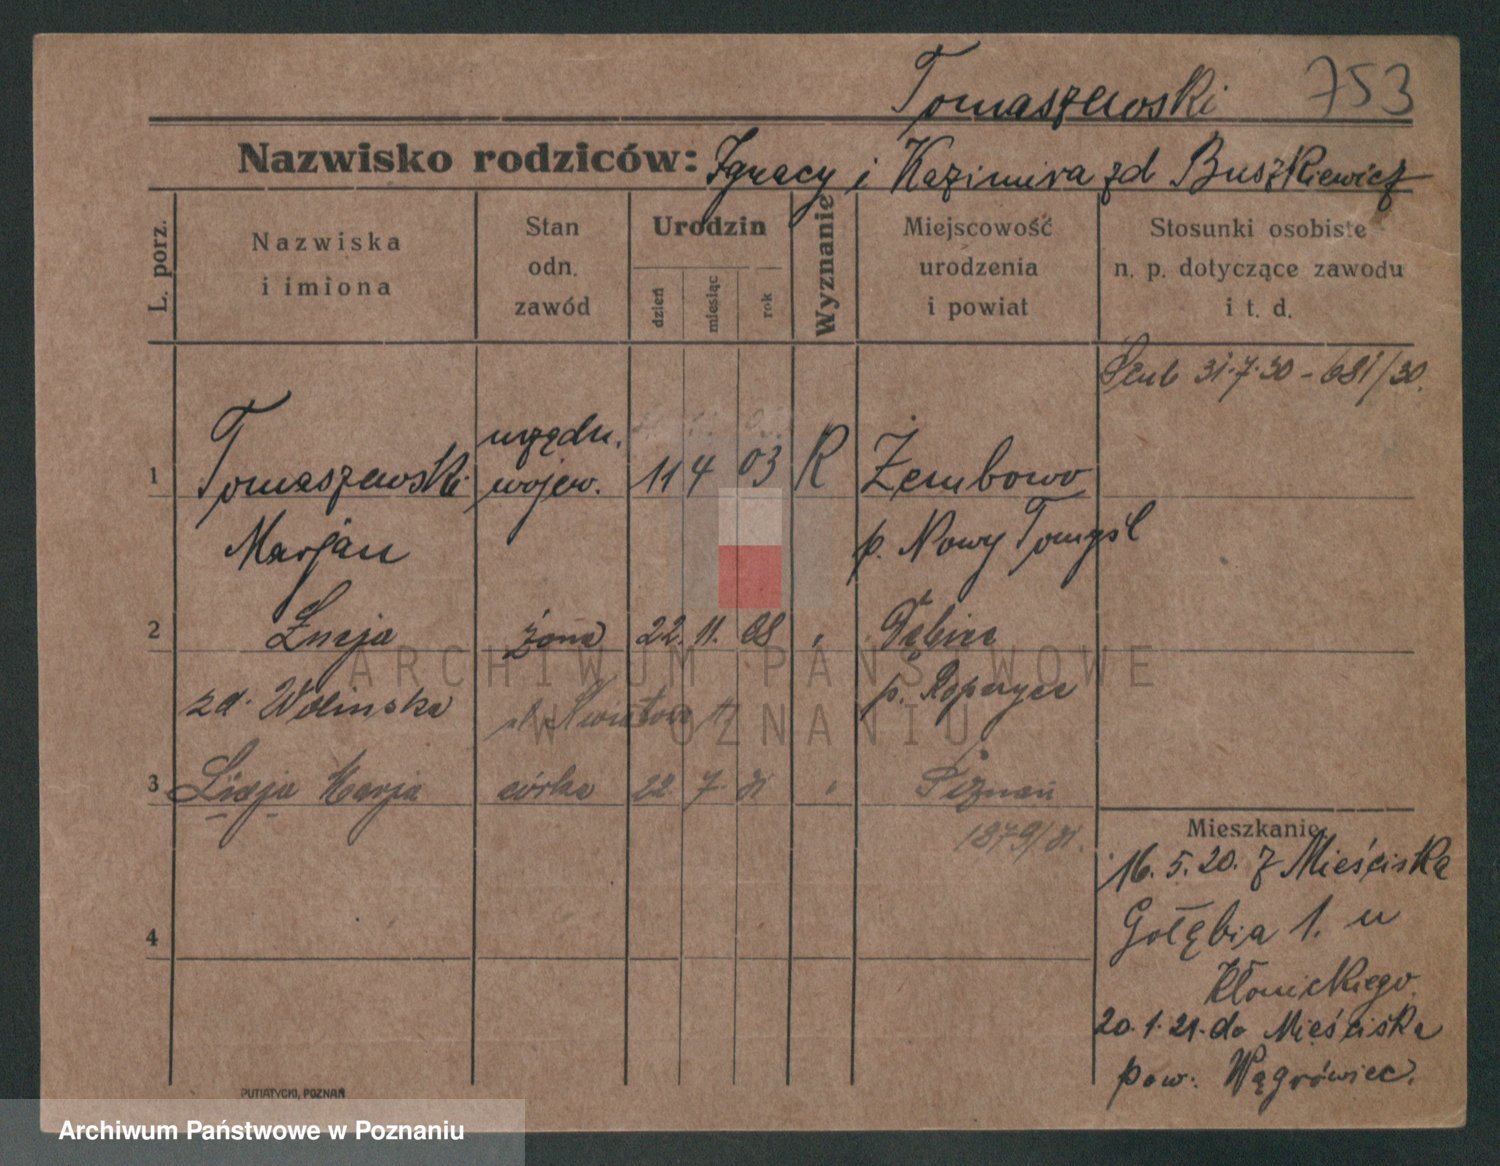 Tomaszewski 753
Nazwisko rodziców: Ignacy i Kazimira zd Buszkiewicz
L. porz.
Nazwiska
i imiona
Stan
odn.
zawód
Urodzin
dzień
miesiąc
rok
Wyznanie
Miejscowość
urodzenia
i powiat
Stosunki osobiste
n. p. dotyczące zawodu
i t. d.
31.7.30 - 681/30.
urzędn.
1 Tomaszewski wojew. 11 4 03 R Żembowo
Marjan p. Nowy Tomyśl
2 Łucja żona 22. 11. 08 „
zd. Wolinska p.
3 córka 22 7 31 „ Poznań
1879/31.
4
Mieszkanie
16. 5. 20. z Mieściska
Gołębia 1. u
Kłonickiego
20.1.21. do Mieściska
pow. Wągrówiec.
PUTIATYCKI, POZNAŃ
ARCHIWUM PAŃSTWOWE
W POZNANIU
Archiwum Państwowe w Poznaniu